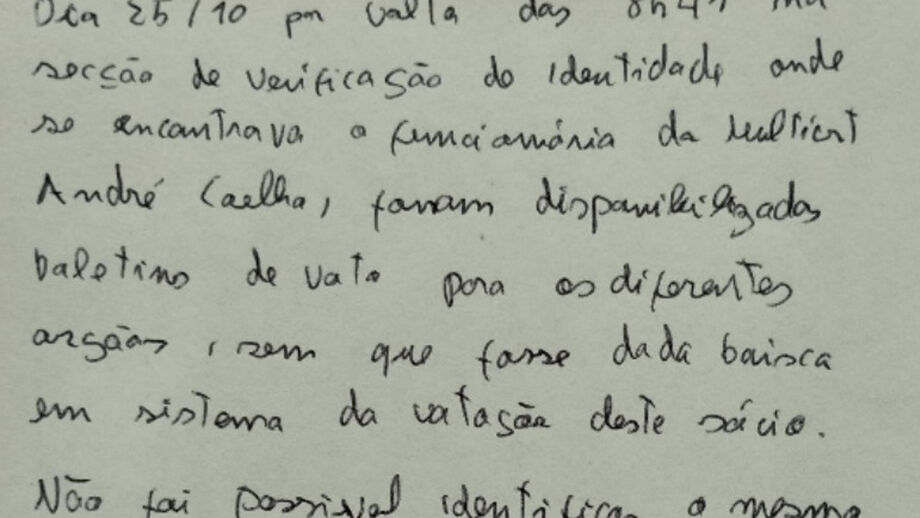 Dia 25/10 por volta das 8h47 na
secção de verificação de identidade onde
se encontrava o funcionário da Multicert
André Coelho, foram disponibilizados
boletins de voto para os diferentes
orgãos, sem que fosse dada baixa
em sistema da votação deste sócio.
Não foi possivel identificar o mesmo